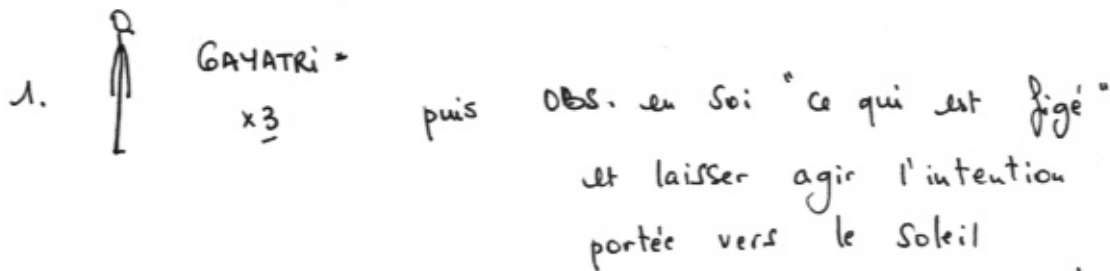 1. GAYATRi *
x3 puis OBS. en Soi "ce qui est figé"
et laisser agir l'intention
portée vers le Soleil